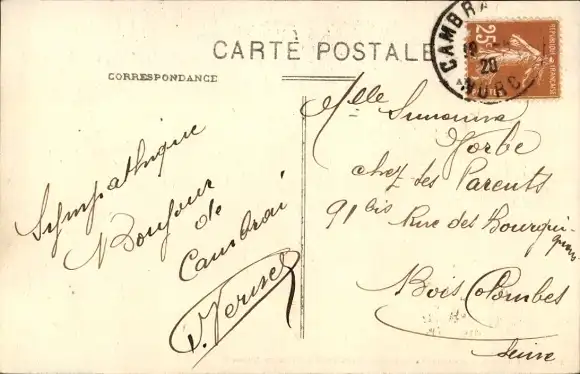 CARTE POSTALE
CORRESPONDANCE
CAMBRAI
20
NORD
25c
REPUBLIQUE FRANÇAISE
Sympathique
Bonjour
de
Cambrai
Mlle Simonne
Vorbe
chez ses Parents
91 bis Rue des Bourgui-
gnons
Bois Colombes
Seine